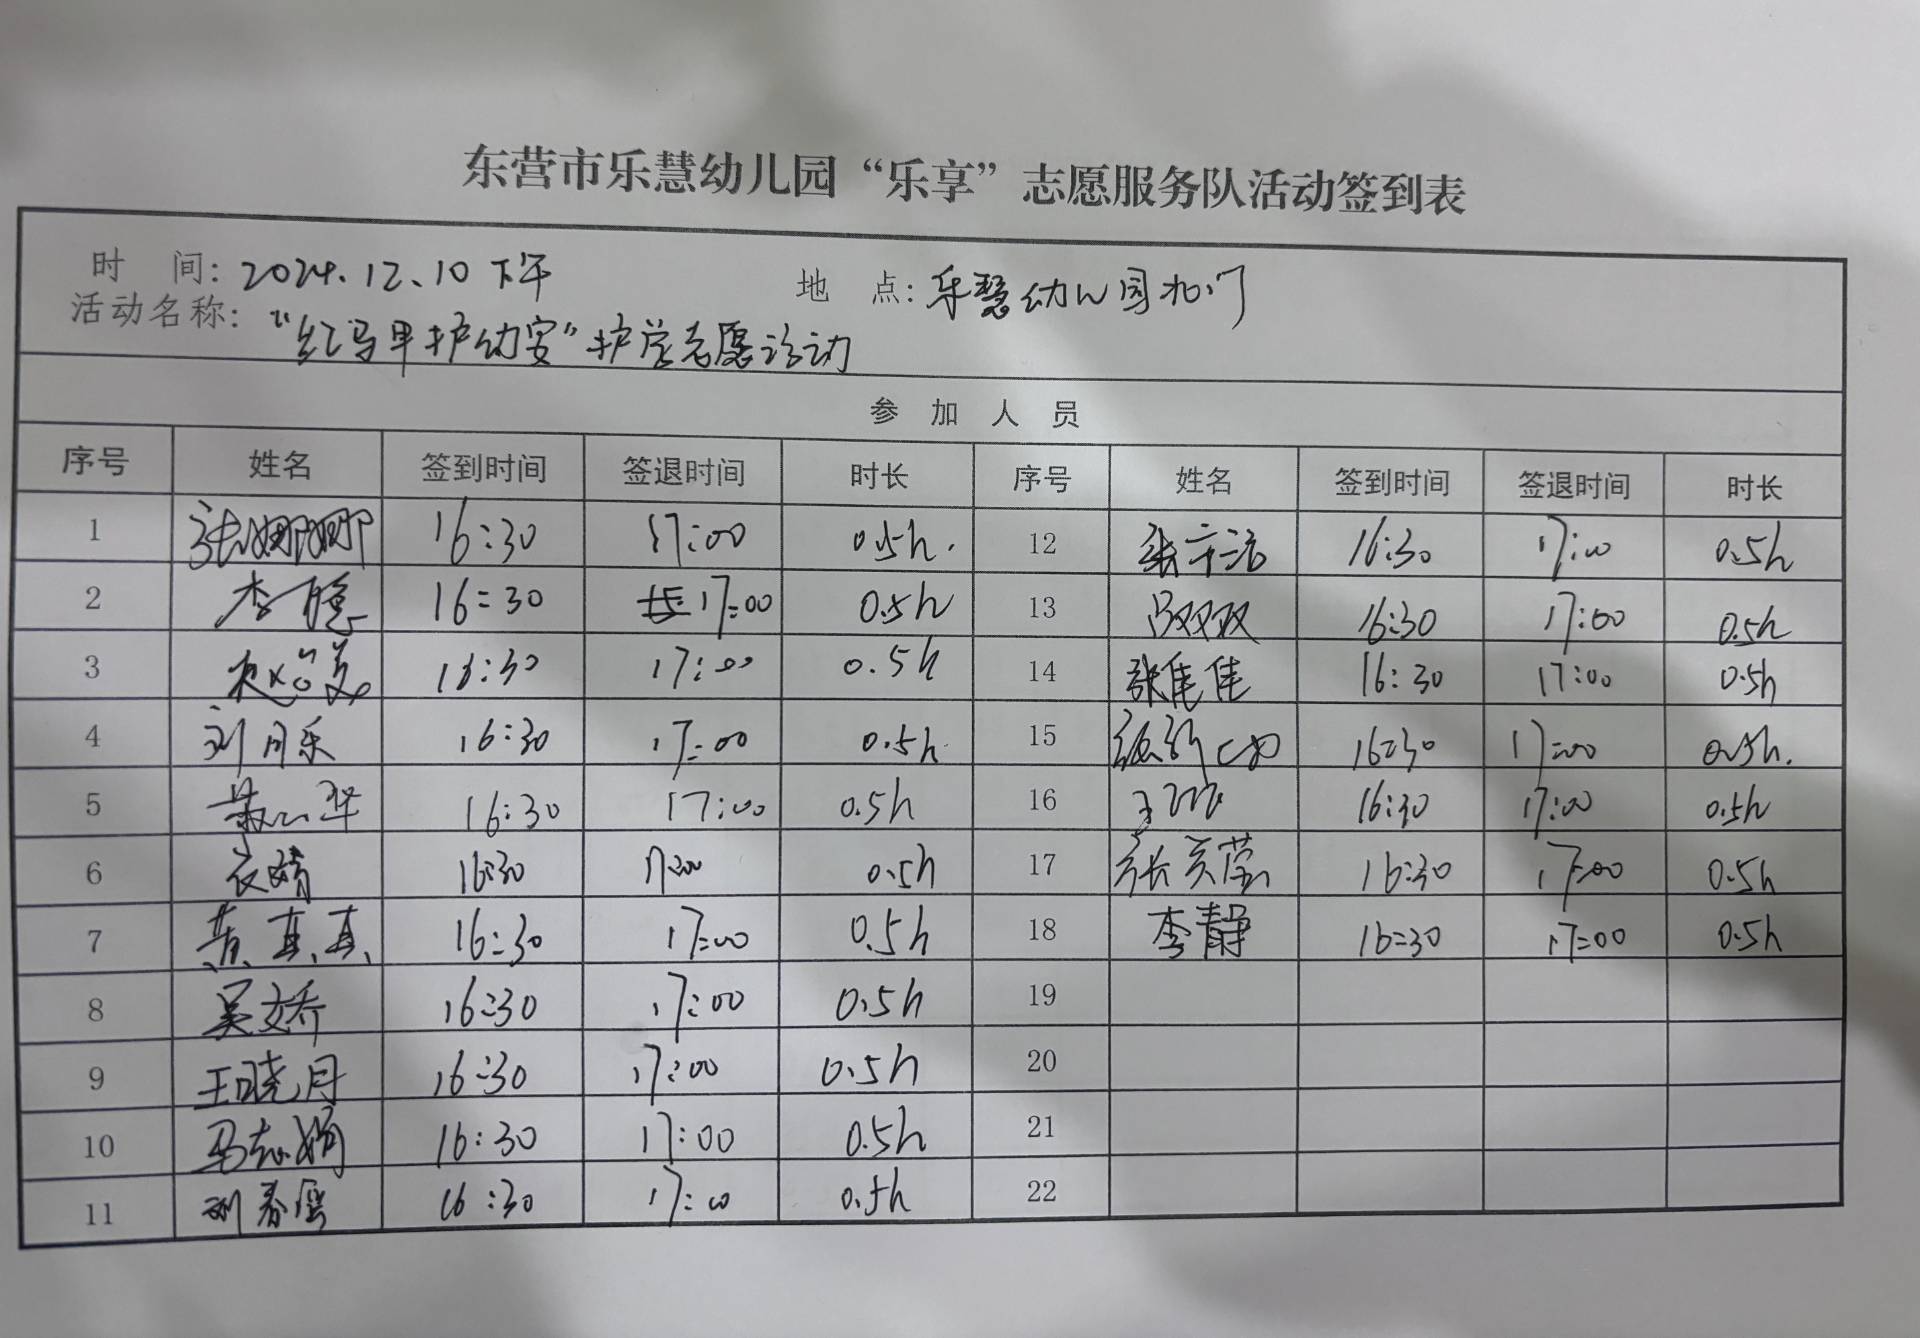 东营市乐慧幼儿园“乐享”志愿服务队活动签到表
时 间: 2024.12.10 下午 地 点: 乐慧幼儿园北门
活动名称: “红马甲护幼安”护学志愿活动
参 加 人 员
序号 姓名 签到时间 签退时间 时长 序号 姓名 签到时间 签退时间 时长
1 张娜娜 16:30 17:00 0.5h. 12 张 16:30 17:00 0.5h
2 李聪 16:30 17:00 0.5h 13 吕双双 16:30 17:00 0.5h
3 赵 16:30 17:00 0.5h 14 张佳佳 16:30 17:00 0.5h
4 刘月乐 16:30 17:00 0.5h 15 16:30 17:00 0.5h.
5 16:30 17:00 0.5h 16 王 16:30 17:00 0.5h
6 衣婧 16:30 17:00 0.5h 17 张关莹 16:30 17:00 0.5h
7 黄真真 16:30 17:00 0.5h 18 李静 16:30 17:00 0.5h
8 吴文娇 16:30 17:00 0.5h 19
9 王晓月 16:30 17:00 0.5h 20
10 马志娟 16:30 17:00 0.5h 21
11 刘春瑶 16:30 17:00 0.5h 22